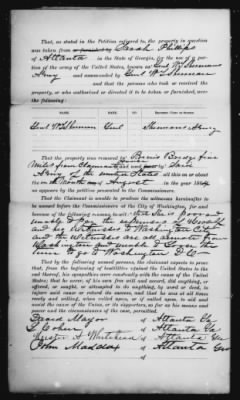 That, as stated in the Petition referred to, the property in question
was taken from or furnished by Sarah Phillips
of Atlanta in the State of Georgia, for the use of a por-
tion of the army of the United States, known as Genl W T Shermans
Army and commanded by Genl W T Sherman
and that the persons who took or received the
property, or who authorized or directed it to be taken or furnished, were
the following:
NAME. RANK.
Genl W T Sherman Genl Shermans Army
That the property was removed to Bridge five
Miles from Claimant and used by Said
Army of the United States all this on or about
the in the Month of August in the year 1864
as appears by the petition presented to the Commissioners.
That the Claimant is unable to produce the witnesses hereinafter to
be named before the Commissioners at the City of Washington, for
because of following reasons, to wit: that She is poor and
unable to pay the expenses of herself
and her Witnesses to Washington City
and the Witnesses are all from
Washington and unable to the
time to go to Washington D C
That by the following named persons, the claimant expects to prove
that, from the beginning of hostilities against the United States to the
end thereof, his sympathies were constantly with the cause of the United
States; that he never, of his own free will and accord, did anything, or
offered, or sought, or attempted to do anything, by word or deed, to
injure said cause or retard its success, and that he was at all times
ready and willing, when called upon, or if called upon, to aid and
assist the cause of the Union, or its supporters, so far as his means and
power, and the circumstances of the case, permitted.
David Mayer of Atlanta Ga
Cohen of Atlanta Ga
A Whitehead of Atlanta Ga
John Maddox of Atlanta Geo
of